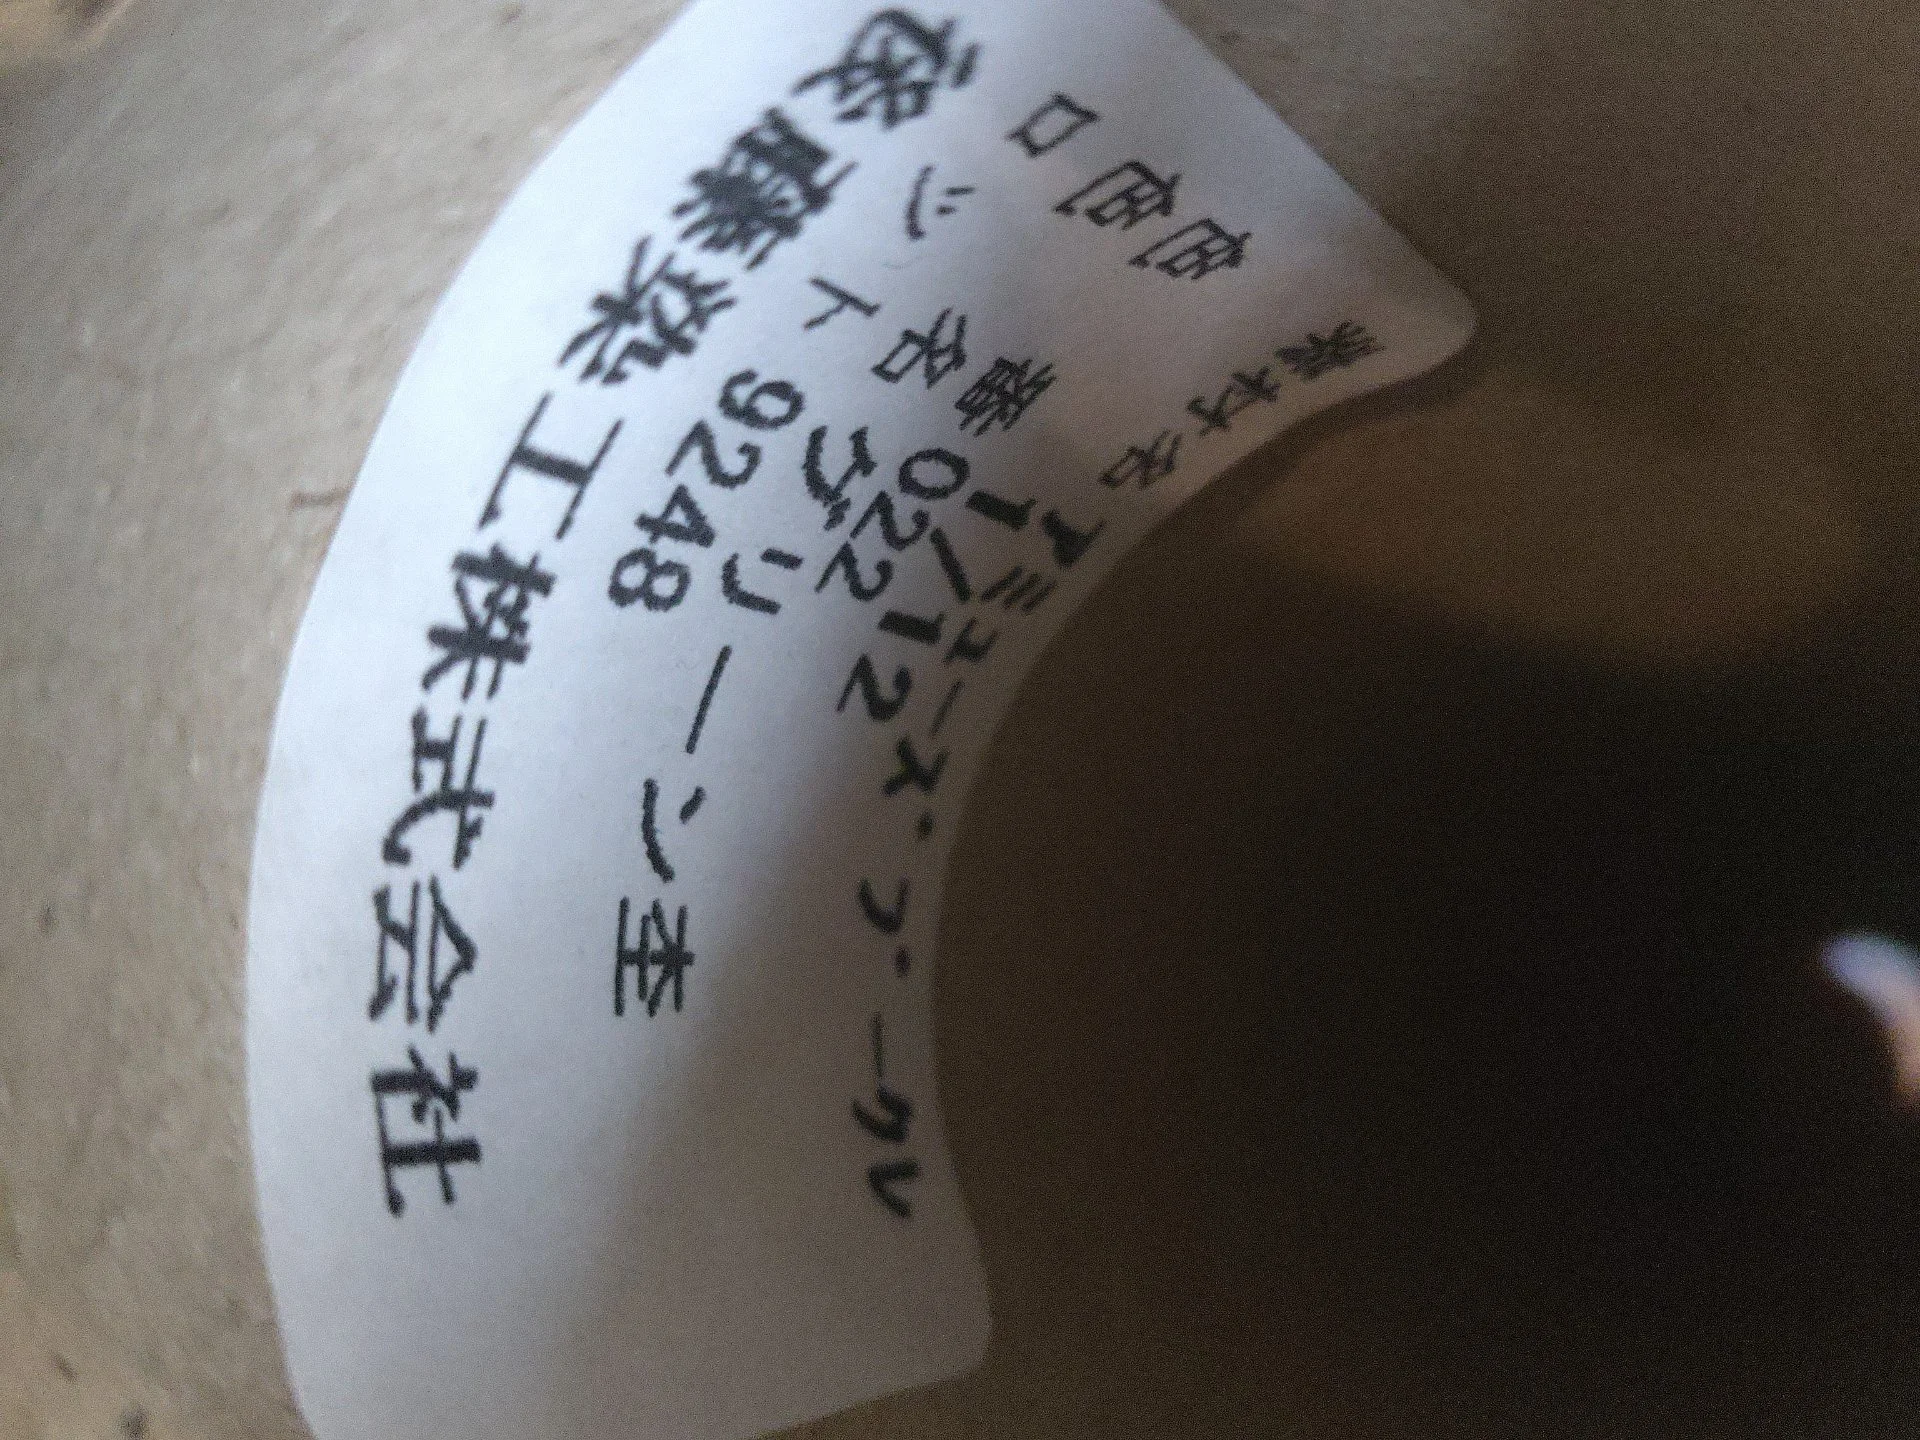 素材名 アミューズブークル
1/12
色番 022
色名 グリーン杢
ロット 9248
後藤染工株式会社